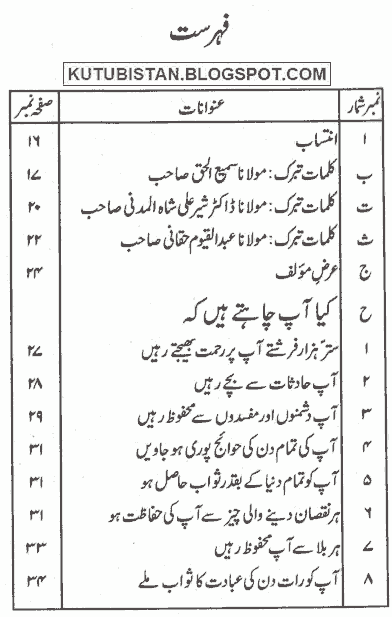 فہرست
KUTUBISTAN.BLOGSPOT.COM
نمبر شمار عنوانات صفحہ نمبر
ا انتساب ۱۶
ب کلمات تبرک: مولانا سمیع الحق صاحب ۱۷
ت کلمات تبرک: مولانا ڈاکٹر شیر علی شاہ المدنی صاحب ۲۰
ث کلمات تبرک: مولانا عبد القیوم حقانی صاحب ۲۲
ج عرض مؤلف ۲۴
ح کیا آپ چاہتے ہیں کہ
۱ ستر ہزار فرشتے آپ پر رحمت بھیجتے رہیں ۲۷
۲ آپ حادثات سے بچے رہیں ۲۸
۳ آپ دشمنوں اور مفسدوں سے محفوظ رہیں ۲۹
۴ آپ کی تمام دن کی حوائج پوری ہو جاویں ۳۱
۵ آپ کو تمام دنیا کے بقدر ثواب حاصل ہو ۳۱
۶ ہر نقصان دینے والی چیز سے آپ کی حفاظت ہو ۳۱
۷ ہر بلا سے آپ محفوظ رہیں ۳۳
۸ آپ کو رات دن کی عبادت کا ثواب ملے ۳۴